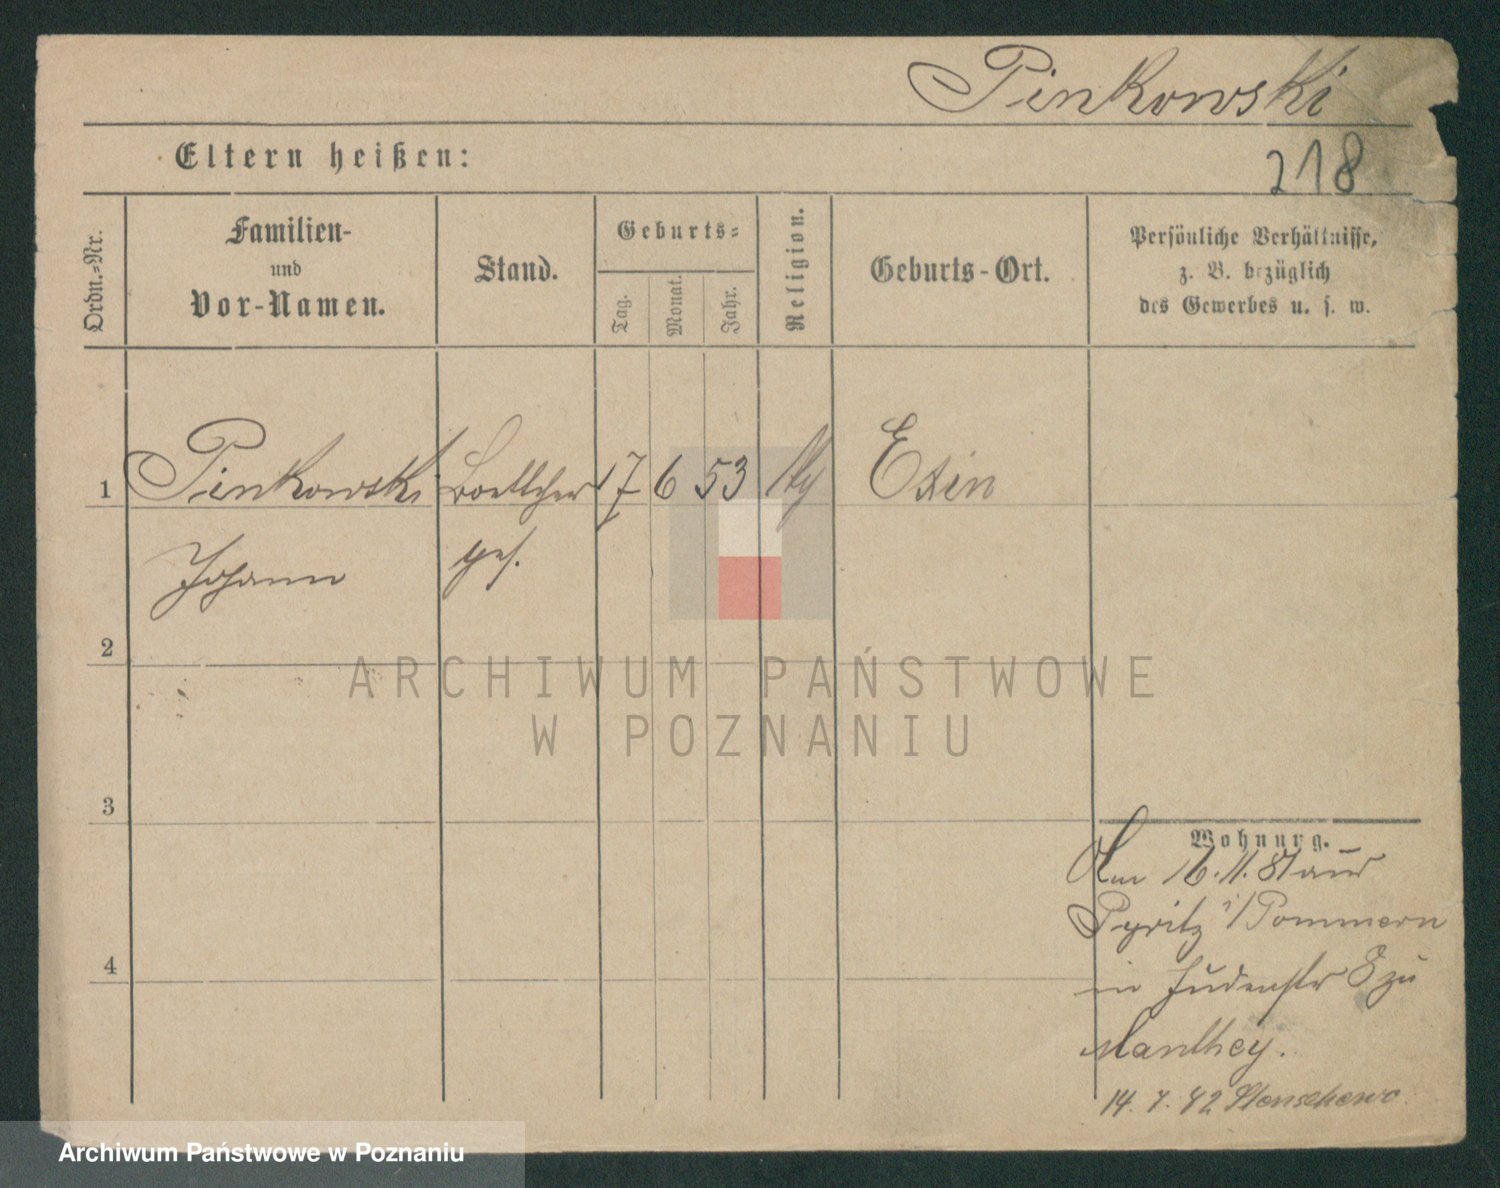 Pinkowski
Eltern heißen:
218
Ordn.=Nr.
Familien-
und
Vor-Namen.
Stand.
Geburts=
Tag.
Monat.
Jahr.
Religion.
Geburts-Ort.
Persönliche Verhältnisse,
z. B. bezüglich
des Gewerbes u. s. w.
1
Pinkowski Boettcher 17 6 53 Exin
Johann
2
3
4
Wohnung.
Am 16. 11.
Pyritz i/Pommern
in Judenstr 8 zu
Manthey.
14. 7. 92 Stenschewo.
ARCHIWUM PAŃSTWOWE
W POZNANIU
Archiwum Państwowe w Poznaniu